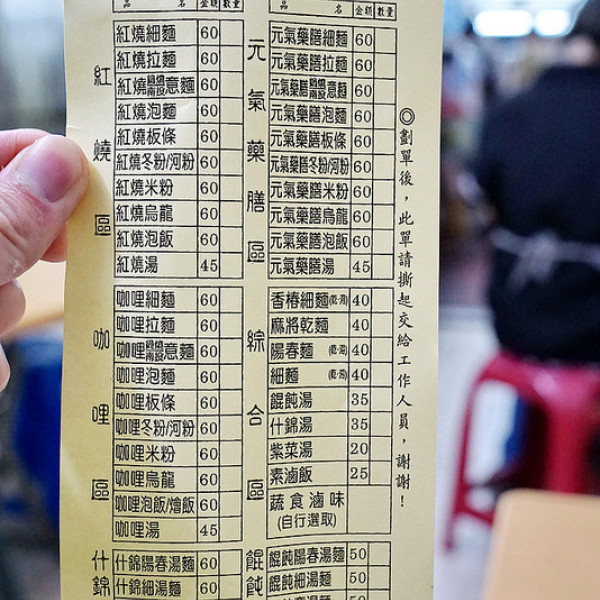 品 名 金額 數量
紅燒區
紅燒細麵 60
紅燒拉麵 60
紅燒鍋燒意麵 60
紅燒泡麵 60
紅燒板條 60
紅燒冬粉/河粉 60
紅燒米粉 60
紅燒烏龍 60
紅燒泡飯 60
紅燒湯 45
咖哩區
咖哩細麵 60
咖哩拉麵 60
咖哩意麵 60
咖哩泡麵 60
咖哩板條 60
咖哩冬粉/河粉 60
咖哩米粉 60
咖哩烏龍 60
咖哩泡飯/燴飯 60
咖哩湯 45
什錦
什錦陽春湯麵 60
什錦細湯麵 60
品 名 金額 數量
元氣藥膳區
元氣藥膳細麵 60
元氣藥膳拉麵 60
元氣藥膳意麵 60
元氣藥膳泡麵 60
元氣藥膳板條 60
元氣藥膳冬粉/河粉 60
元氣藥膳米粉 60
元氣藥膳烏龍 60
元氣藥膳泡飯 60
元氣藥膳湯 45
綜合區
香椿細麵(乾.湯) 40
麻將乾麵 40
陽春麵 (乾.湯) 40
細麵 (乾.湯) 40
餛飩湯 35
什錦湯 35
紫菜湯 20
素滷飯 25
蔬食滷味
(自行選取)
餛飩
餛飩陽春湯麵 50
餛飩細湯麵 50
◎劃單後，此單請撕起交給工作人員，謝謝！